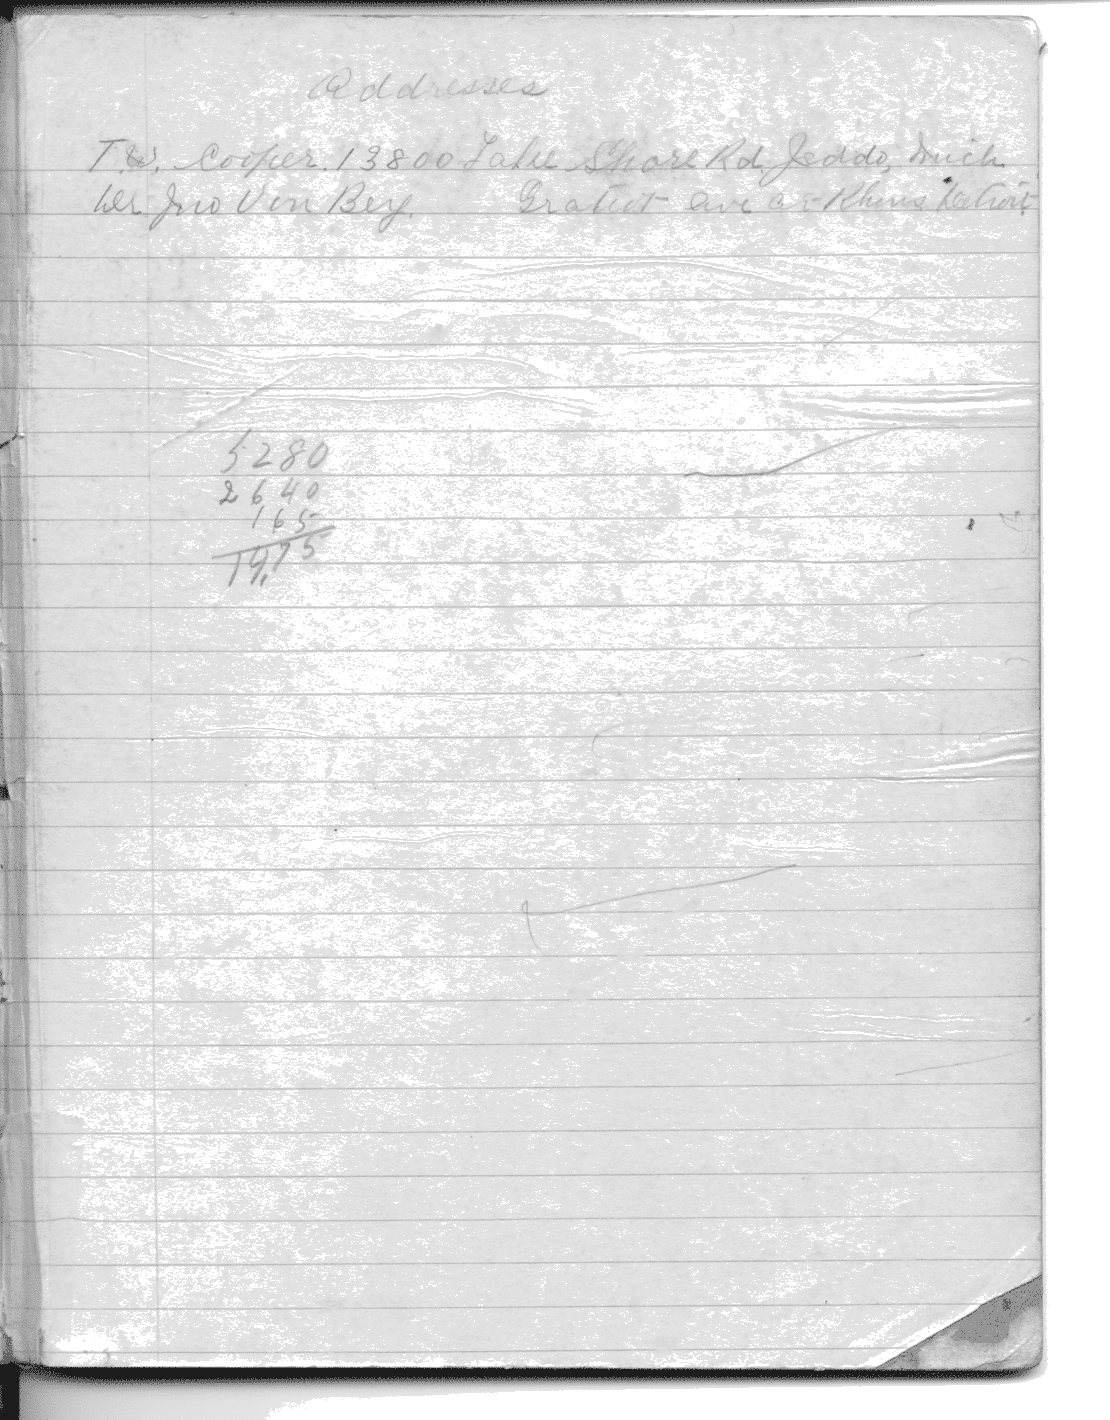 Addresses
T.W. Cooper. 13800 Lake Shore Rd. Jeddo, Mich
Jno Van Bey. Gratiot ave at Detroit
5280
2640
165
19,75